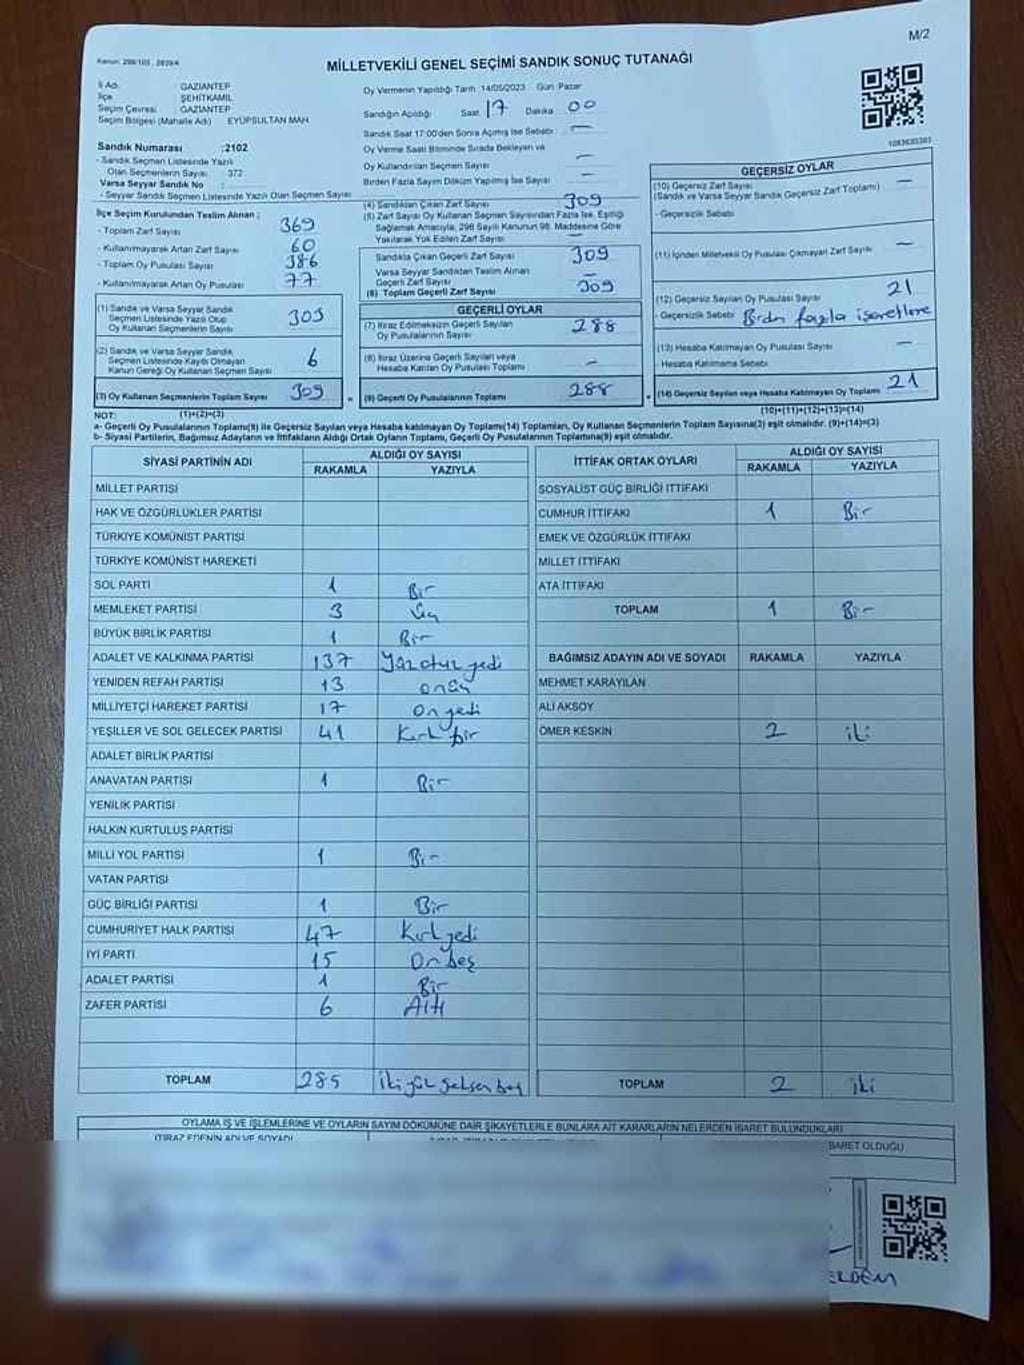 M/2
Kanun: 298/105 , 2839/4
MİLLETVEKİLİ GENEL SEÇİMİ SANDIK SONUÇ TUTANAĞI
İl Adı : GAZİANTEP
İlçe : ŞEHİTKAMİL
Seçim Çevresi : GAZİANTEP
Seçim Bölgesi (Mahalle Adı) : EYÜPSULTAN MAH.
Oy Vermenin Yapıldığı Tarih: 14/05/2023 Gün: Pazar
Sandığın Açıldığı Saat: 17 Dakika: 00
Sandık Saat 17:00'den Sonra Açılmış İse Sebebi: —
Oy Verme Saati Bitiminde Sırada Bekleyen ve
Oy Kullandırılan Seçmen Sayısı —
Birden Fazla Sayım Döküm Yapılmış İse Sayısı —
Sandık Numarası :2102
- Sandık Seçmen Listesinde Yazılı
Olan Seçmenlerin Sayısı: 372
Varsa Seyyar Sandık No :
- Seyyar Sandık Seçmen Listesinde Yazılı Olan Seçmen Sayısı
İlçe Seçim Kurulundan Teslim Alınan :
- Toplam Zarf Sayısı 369
- Kullanılmayarak Artan Zarf Sayısı 60
- Toplam Oy Pusulası Sayısı 386
- Kullanılmayarak Artan Oy Pusulası 77
(1) Sandık ve Varsa Seyyar Sandık
Seçmen Listesinde Yazılı Olup
Oy Kullanan Seçmenlerin Sayısı 303
(2) Sandık ve Varsa Seyyar Sandık
Seçmen Listesinde Kayıtlı Olmayan
Kanun Gereği Oy Kullanan Seçmen Sayısı 6
(3) Oy Kullanan Seçmenlerin Toplam Sayısı 309
(1)+(2)=(3)
(4) Sandıktan Çıkan Zarf Sayısı 309
(5) Zarf Sayısı Oy Kullanan Seçmen Sayısından Fazla İse, Eşitliği
Sağlamak Amacıyla, 298 Sayılı Kanunun 98. Maddesine Göre
Yakılarak Yok Edilen Zarf Sayısı —
Sandıkta Çıkan Geçerli Zarf Sayısı 309
Varsa Seyyar Sandıktan Teslim Alınan
Geçerli Zarf Sayısı —
(6) Toplam Geçerli Zarf Sayısı 309
GEÇERLİ OYLAR
(7) İtiraz Edilmeksizin Geçerli Sayılan
Oy Pusulalarının Sayısı 288
(8) İtiraz Üzerine Geçerli Sayılan veya
Hesaba Katılan Oy Pusulası Toplamı —
(9) Geçerli Oy Pusulalarının Toplamı 288
1083635383
GEÇERSİZ OYLAR
(10) Geçersiz Zarf Sayısı —
(Sandık ve Varsa Seyyar Sandık Geçersiz Zarf Toplamı)
- Geçersizlik Sebebi
(11) İçinden Milletvekili Oy Pusulası Çıkmayan Zarf Sayısı —
(12) Geçersiz Sayılan Oy Pusulası Sayısı 21
- Geçersizlik Sebebi Birdn fazla işaretleme
(13) Hesaba Katılmayan Oy Pusulası Sayısı —
Hesaba Katılmama Sebebi
(14) Geçersiz Sayılan veya Hesaba Katılmayan Oy Toplamı 21
(10)+(11)+(12)+(13)=(14)
NOT:
a- Geçerli Oy Pusulalarının Toplamı(9) ile Geçersiz Sayılan veya Hesaba katılmayan Oy Toplamı(14) Toplamları, Oy Kullanan Seçmenlerin Toplam Sayısına(3) eşit olmalıdır. (9)+(14)=(3)
b- Siyasi Partilerin, Bağımsız Adayların ve İttifakların Aldığı Ortak Oyların Toplamı, Geçerli Oy Pusulalarının Toplamına(9) eşit olmalıdır.
SİYASİ PARTİNİN ADI ALDIĞI OY SAYISI
RAKAMLA YAZIYLA
MİLLET PARTİSİ
HAK VE ÖZGÜRLÜKLER PARTİSİ
TÜRKİYE KOMÜNİST PARTİSİ
TÜRKİYE KOMÜNİST HAREKETİ
SOL PARTİ 1 Bir
MEMLEKET PARTİSİ 3 Üç
BÜYÜK BİRLİK PARTİSİ 1 Bir
ADALET VE KALKINMA PARTİSİ 137 Yüzotuz yedi
YENİDEN REFAH PARTİSİ 13 onüç
MİLLİYETÇİ HAREKET PARTİSİ 17 On yedi
YEŞİLLER VE SOL GELECEK PARTİSİ 41 Kırk bir
ADALET BİRLİK PARTİSİ
ANAVATAN PARTİSİ 1 Bir
YENİLİK PARTİSİ
HALKIN KURTULUŞ PARTİSİ
MİLLİ YOL PARTİSİ 1 Bir
VATAN PARTİSİ
GÜÇ BİRLİĞİ PARTİSİ 1 Bir
CUMHURİYET HALK PARTİSİ 47 Kırk yedi
İYİ PARTİ 15 On beş
ADALET PARTİSİ 1 Bir
ZAFER PARTİSİ 6 Altı
TOPLAM 285 İki yüz seksen beş
İTTİFAK ORTAK OYLARI ALDIĞI OY SAYISI
RAKAMLA YAZIYLA
SOSYALİST GÜÇ BİRLİĞİ İTTİFAKI
CUMHUR İTTİFAKI 1 Bir
EMEK VE ÖZGÜRLÜK İTTİFAKI
MİLLET İTTİFAKI
ATA İTTİFAKI
TOPLAM 1 Bir
BAĞIMSIZ ADAYIN ADI VE SOYADI RAKAMLA YAZIYLA
MEHMET KARAYILAN
ALİ AKSOY
ÖMER KESKİN 2 iki
TOPLAM 2 iki
OYLAMA İŞ VE İŞLEMLERİNE VE OYLARIN SAYIM DÖKÜMÜNE DAİR ŞİKAYETLERLE BUNLARA AİT KARARLARIN NELERDEN İBARET BULUNDUKLARI
İTİRAZ EDENİN ADI VE SOYADI
BARET OLDUĞU
ELDEM